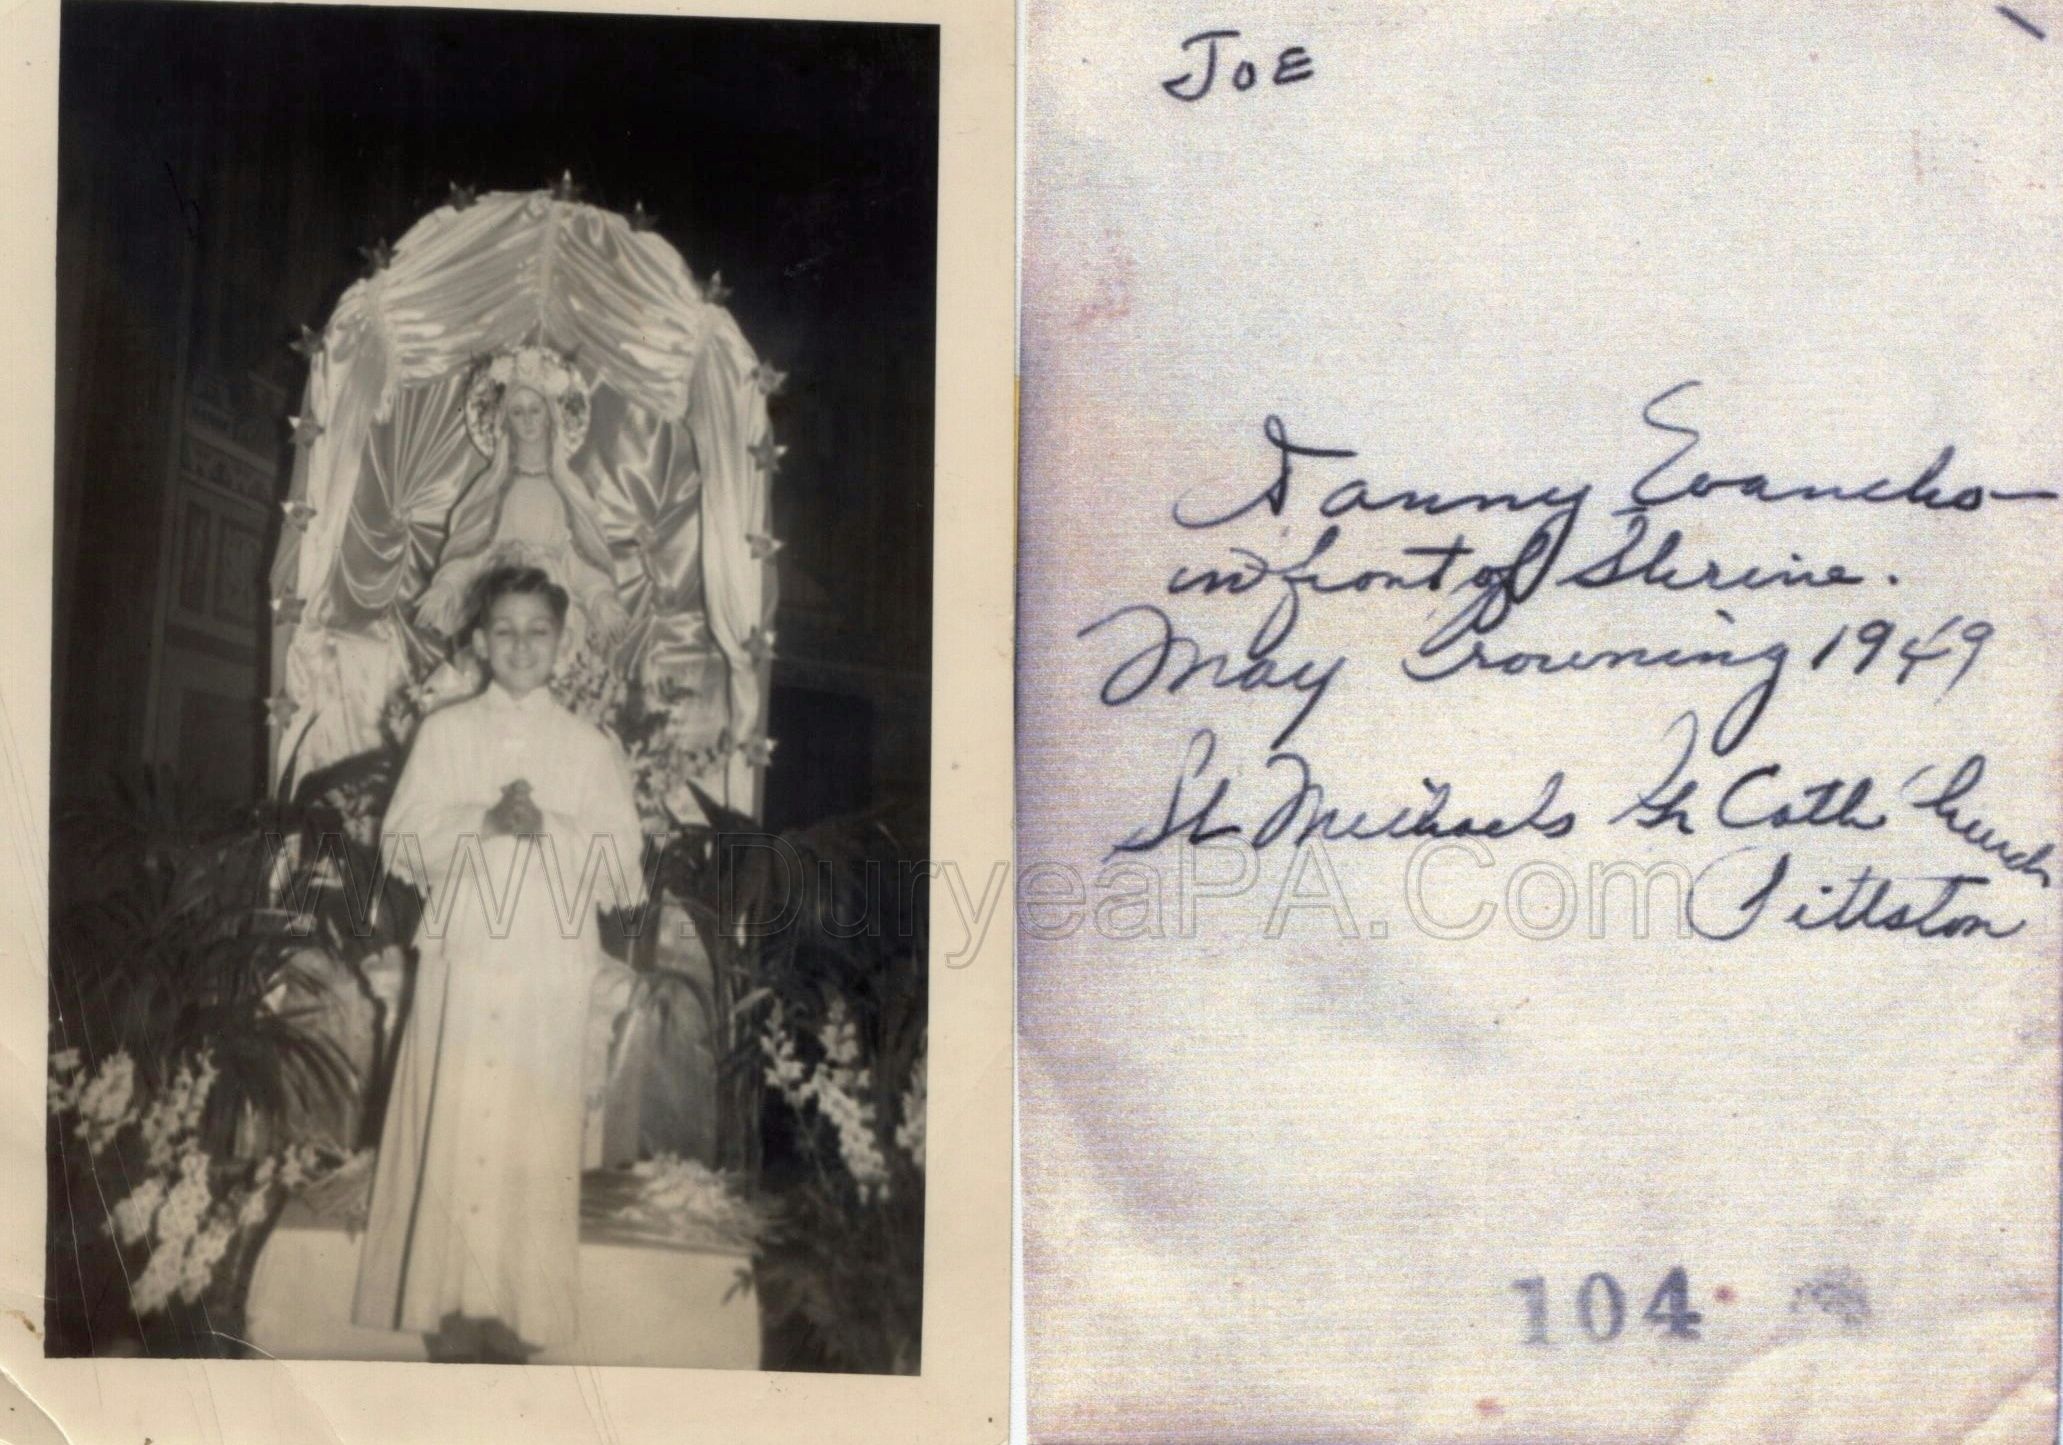 Joe
Danny Evancho
in front of Shrine.
May Crowning 1949
St Michaels Gr Cath Church
Pittston
www.DuryeaPA.Com
104